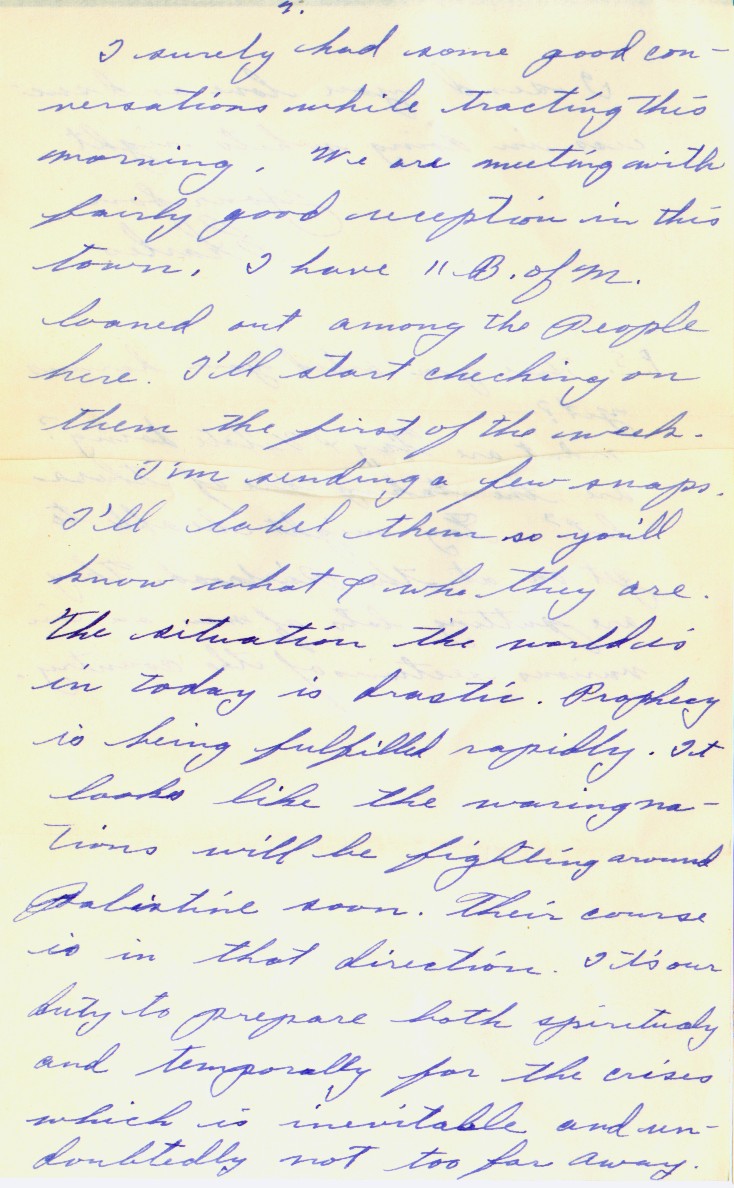 2.
I surely had some good con-
versations while tracting this
morning. We are meeting with
fairly good reception in this
town. I have 11 B. of M.
loaned out among the People
here. I'll start checking on
them the first of the week.
I'm sending a few snaps.
I'll label them so you'll
know what & who they are.
The situation the world is
in today is drastic. Prophecy
is being fulfilled rapidly. It
looks like the waring na-
tions will be fighting around
Palistine soon. Their course
is in that direction. It's our
duty to prepare both spiritualy
and temporally for the crises
which is inevitable and un-
doubtedly not too far away.